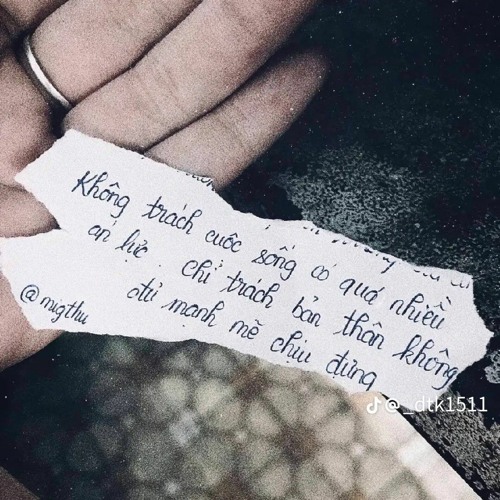 Không trách cuộc sống có quá nhiều
áp lực chỉ trách bản thân không
đủ mạnh mẽ chịu đựng
@migthu
@_dtk1511